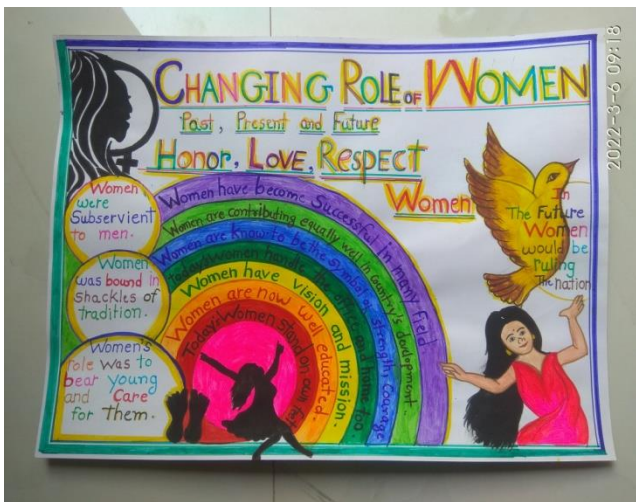 CHANGING ROLE OF WOMEN
Past, Present and Future
Honor, Love, Respect
Women
Women
were
Subservient
to men.
Women
was bound in
shackles of
tradition.
Women's
role was to
bear young
and care
for them.
Women have become successful in many field
Women are contributing equally well in country's development.
Women are known to be the symbol of strength, Courage
Today, Women handle the office and home too.
Women have vision and mission.
Women are now well educated.
Today, Women stand on own feet
In
The Future
Women
would be
ruling
The nation
2022-3-6 09:18